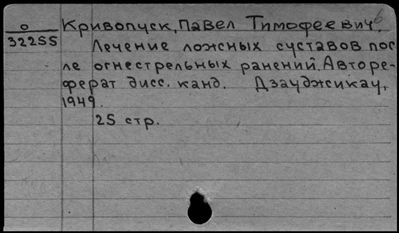 о Кривопуск, Павел Тимофеевич.
32255 Лечение ложных суставов пос
ле огнестрельных ранений. Авторе-
ферат дисс. канд. Дзауджикау,
1949.
25 стр.